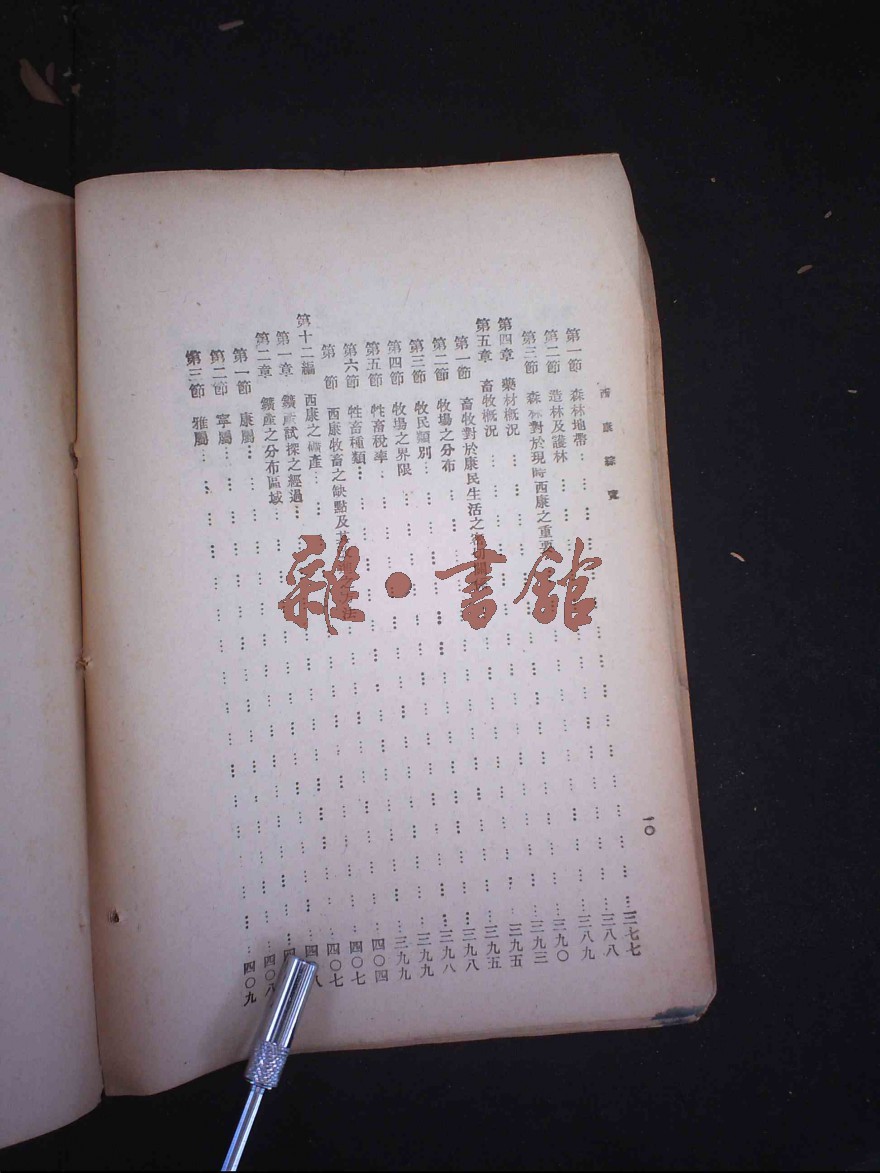 西康綜覽
一〇
第一節 森林地帶……三七七
第二節 造林及護林……三八八
第三節 森林對於現時西康之重要……三八九
第四章 藥材概況……三九〇
第五章 畜牧概況……三九三
第一節 畜牧對於康民生活之……三九五
第二節 牧場之分布……三九五
第三節 牧民類別……三九八
第四節 牧場之界限……三九八
第五節 牲畜稅率……三九九
第六節 牲畜種類……三九九
第 節 西康牧畜之缺點及……四〇四
第十二編 西康之礦產……四〇七
第一章 鑛產試探之經過……四〇七
第二章 鑛產之分布區域……八
第一節 康屬……四
第二節 寧屬……四〇八
第三節 雅屬……四〇九
雜·書館